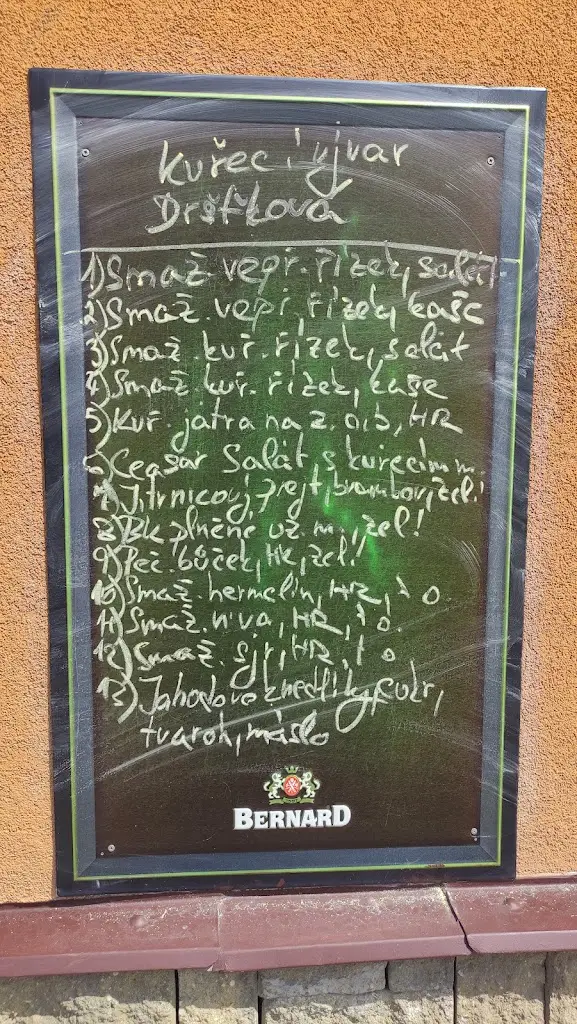 Kuřecí vývar
Dršťková
1) Smaž. vepř. řízek, salát
2) Smaž. vepř. řízek, kaše
3) Smaž. kuř. řízek, salát
4) Smaž. kuř. řízek, kaše
5) Kuř. játra na z. o.b, HR
6) Ceasar Salát s kuřecím m.
7) Jitrnicový prejt, brambor, zel!
8) Bk plněné uz. m., zel!
9) Peč. bůček, Hk, zel!
10) Smaž. hermelín, HR, t o.
11) Smaž. niva, HR, t o.
12) Smaž. sýr, HR, t o.
13) Jahodové knedlíky, cukr,
tvaroh, máslo
BERNARD